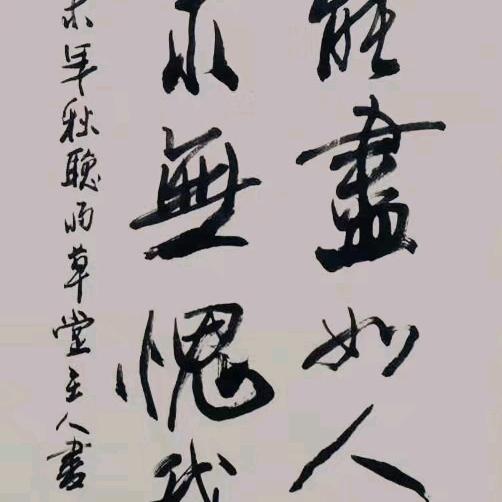 能盡如人
求無愧我
未年秋聽雨草堂主人書